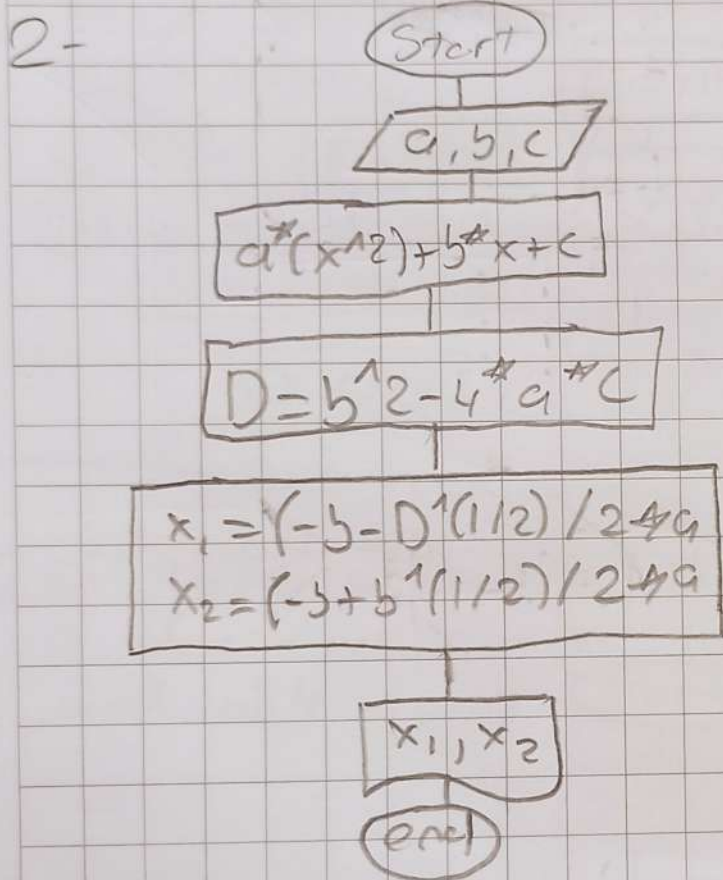 2-
Start
a, b, c
a*(x^2)+b*x+c
D=b^2-4*a*c
x₁=(-b-D^(1/2)/2*a
x₂=(-b+b^(1/2)/2*a
x₁, x₂
end